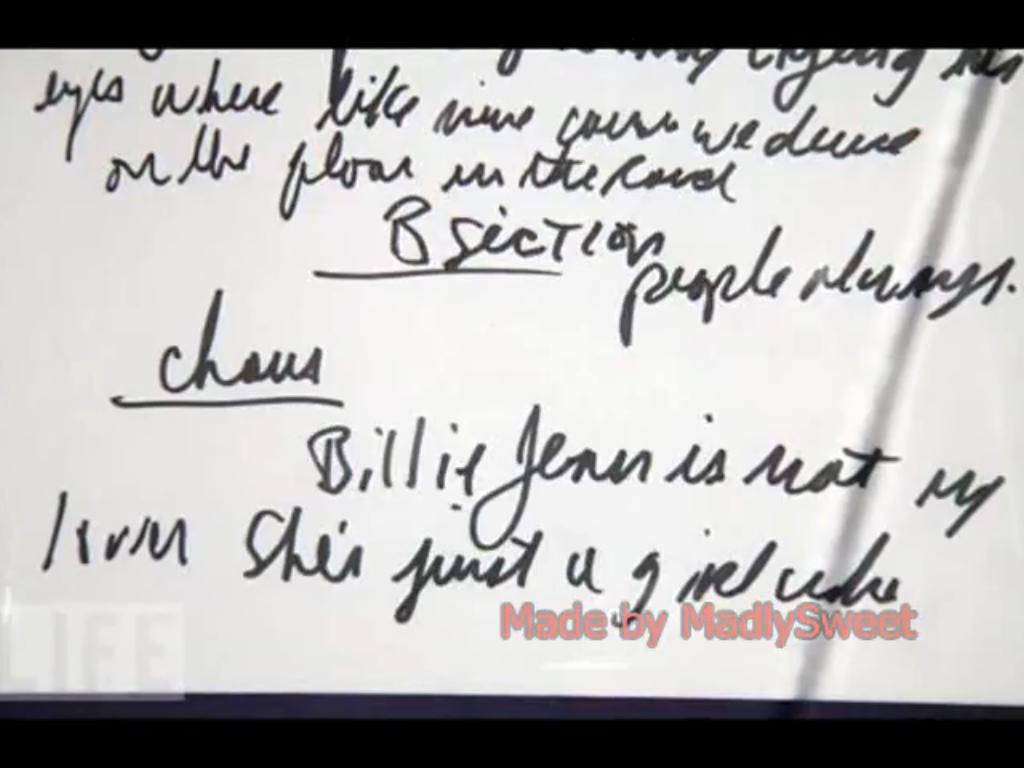 crying his
eyes where like mine 'cause we dance
on the floor in the round
B section
people always.
chorus
Billie Jean is not my
lover She's just a girl who
Made by MadlySweet
LIFE